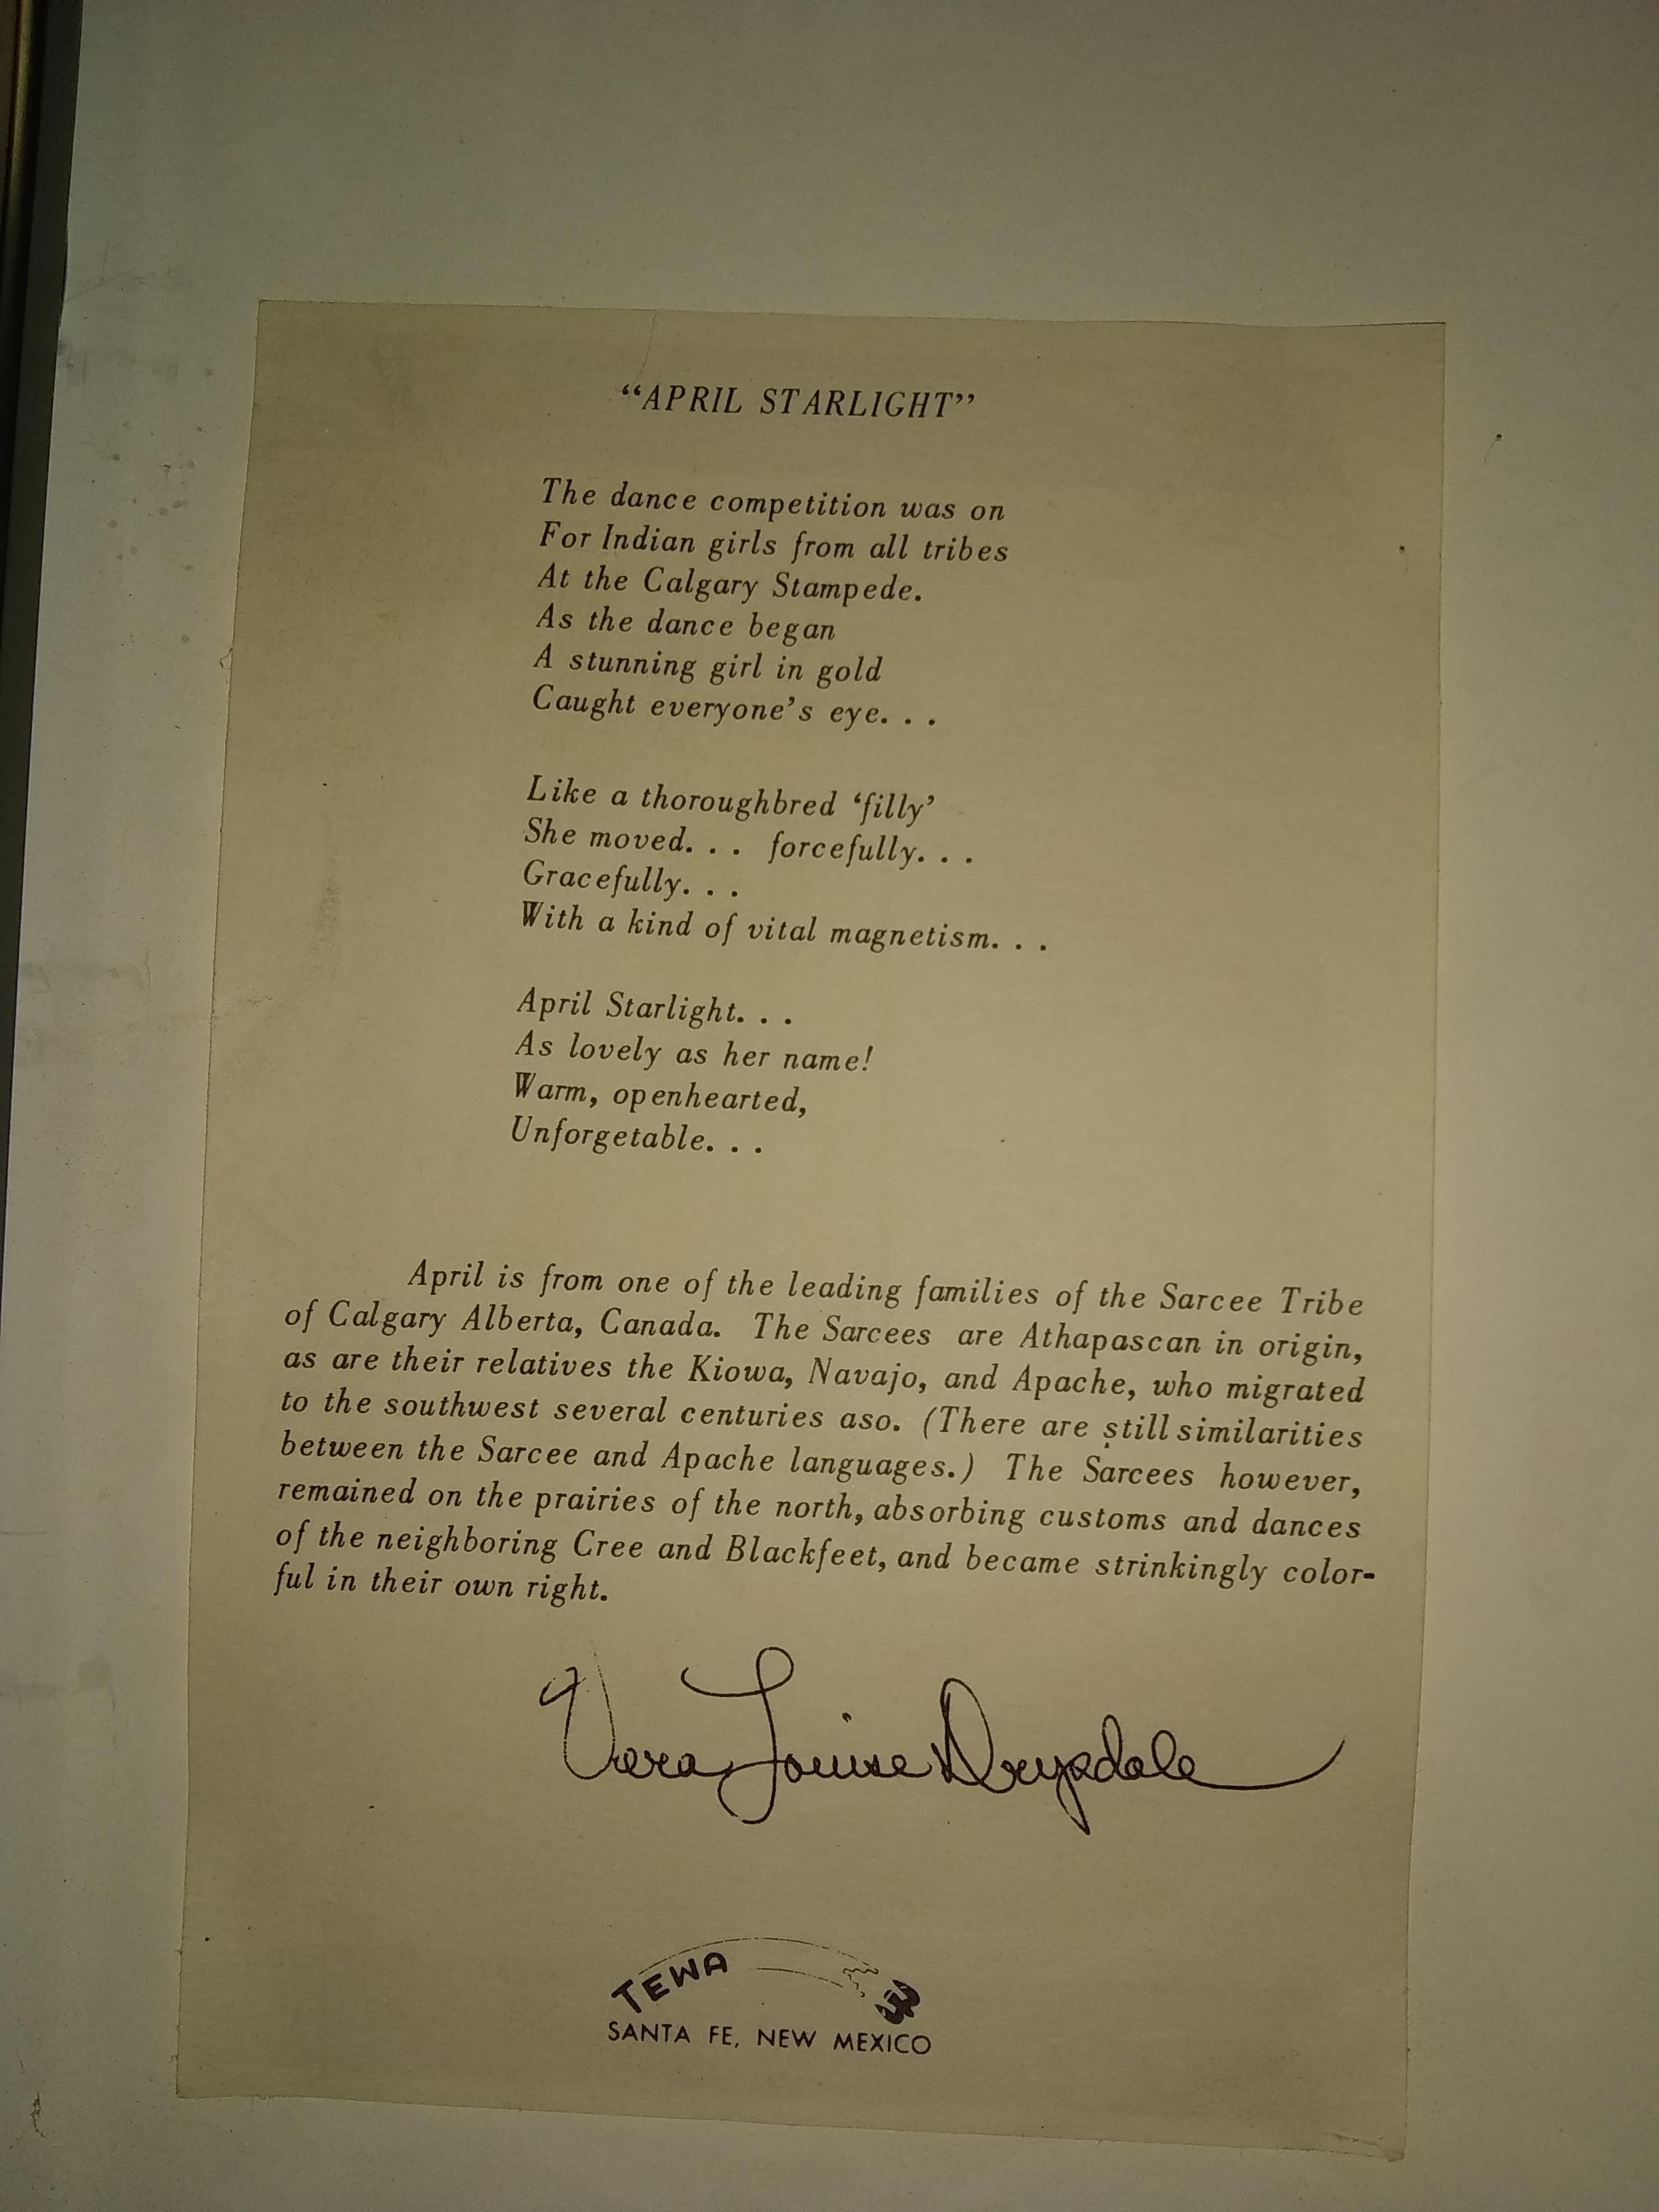 “APRIL STARLIGHT”
The dance competition was on
For Indian girls from all tribes
At the Calgary Stampede.
As the dance began
A stunning girl in gold
Caught everyone’s eye. . .
Like a thoroughbred ‘filly’
She moved. . . forcefully. . .
Gracefully. . .
With a kind of vital magnetism. . .
April Starlight. . .
As lovely as her name!
Warm, openhearted,
Unforgetable. . .
April is from one of the leading families of the Sarcee Tribe
of Calgary Alberta, Canada. The Sarcees are Athapascan in origin,
as are their relatives the Kiowa, Navajo, and Apache, who migrated
to the southwest several centuries aso. (There are still similarities
between the Sarcee and Apache languages.) The Sarcees however,
remained on the prairies of the north, absorbing customs and dances
of the neighboring Cree and Blackfeet, and became strinkingly color-
ful in their own right.
Vera Louise Drysdale
TEWA
SANTA FE, NEW MEXICO